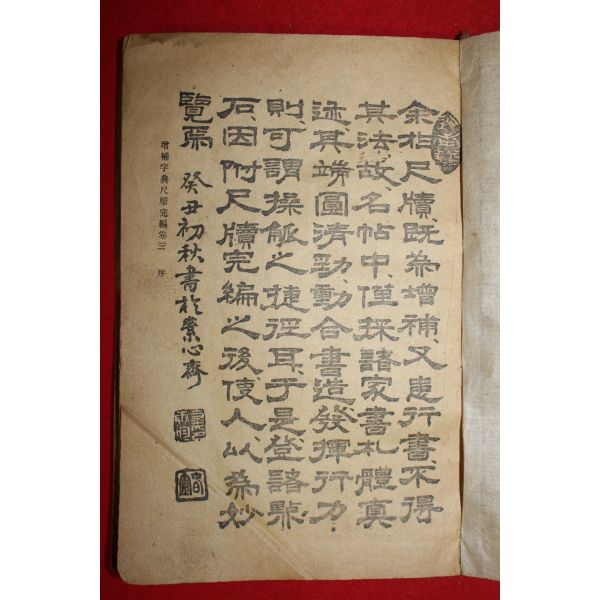 余相尺牘既為增補又患行書不得
其法故名帖中僅採諸家書札體真
述其端圓清勁動合書造發揮行力
則可謂操觚之捷徑耳于是登諸
石因附尺牘完編之後使人以為妙
覽焉 癸丑初秋書於素心齋
增補字典尺牘完編卷三 序